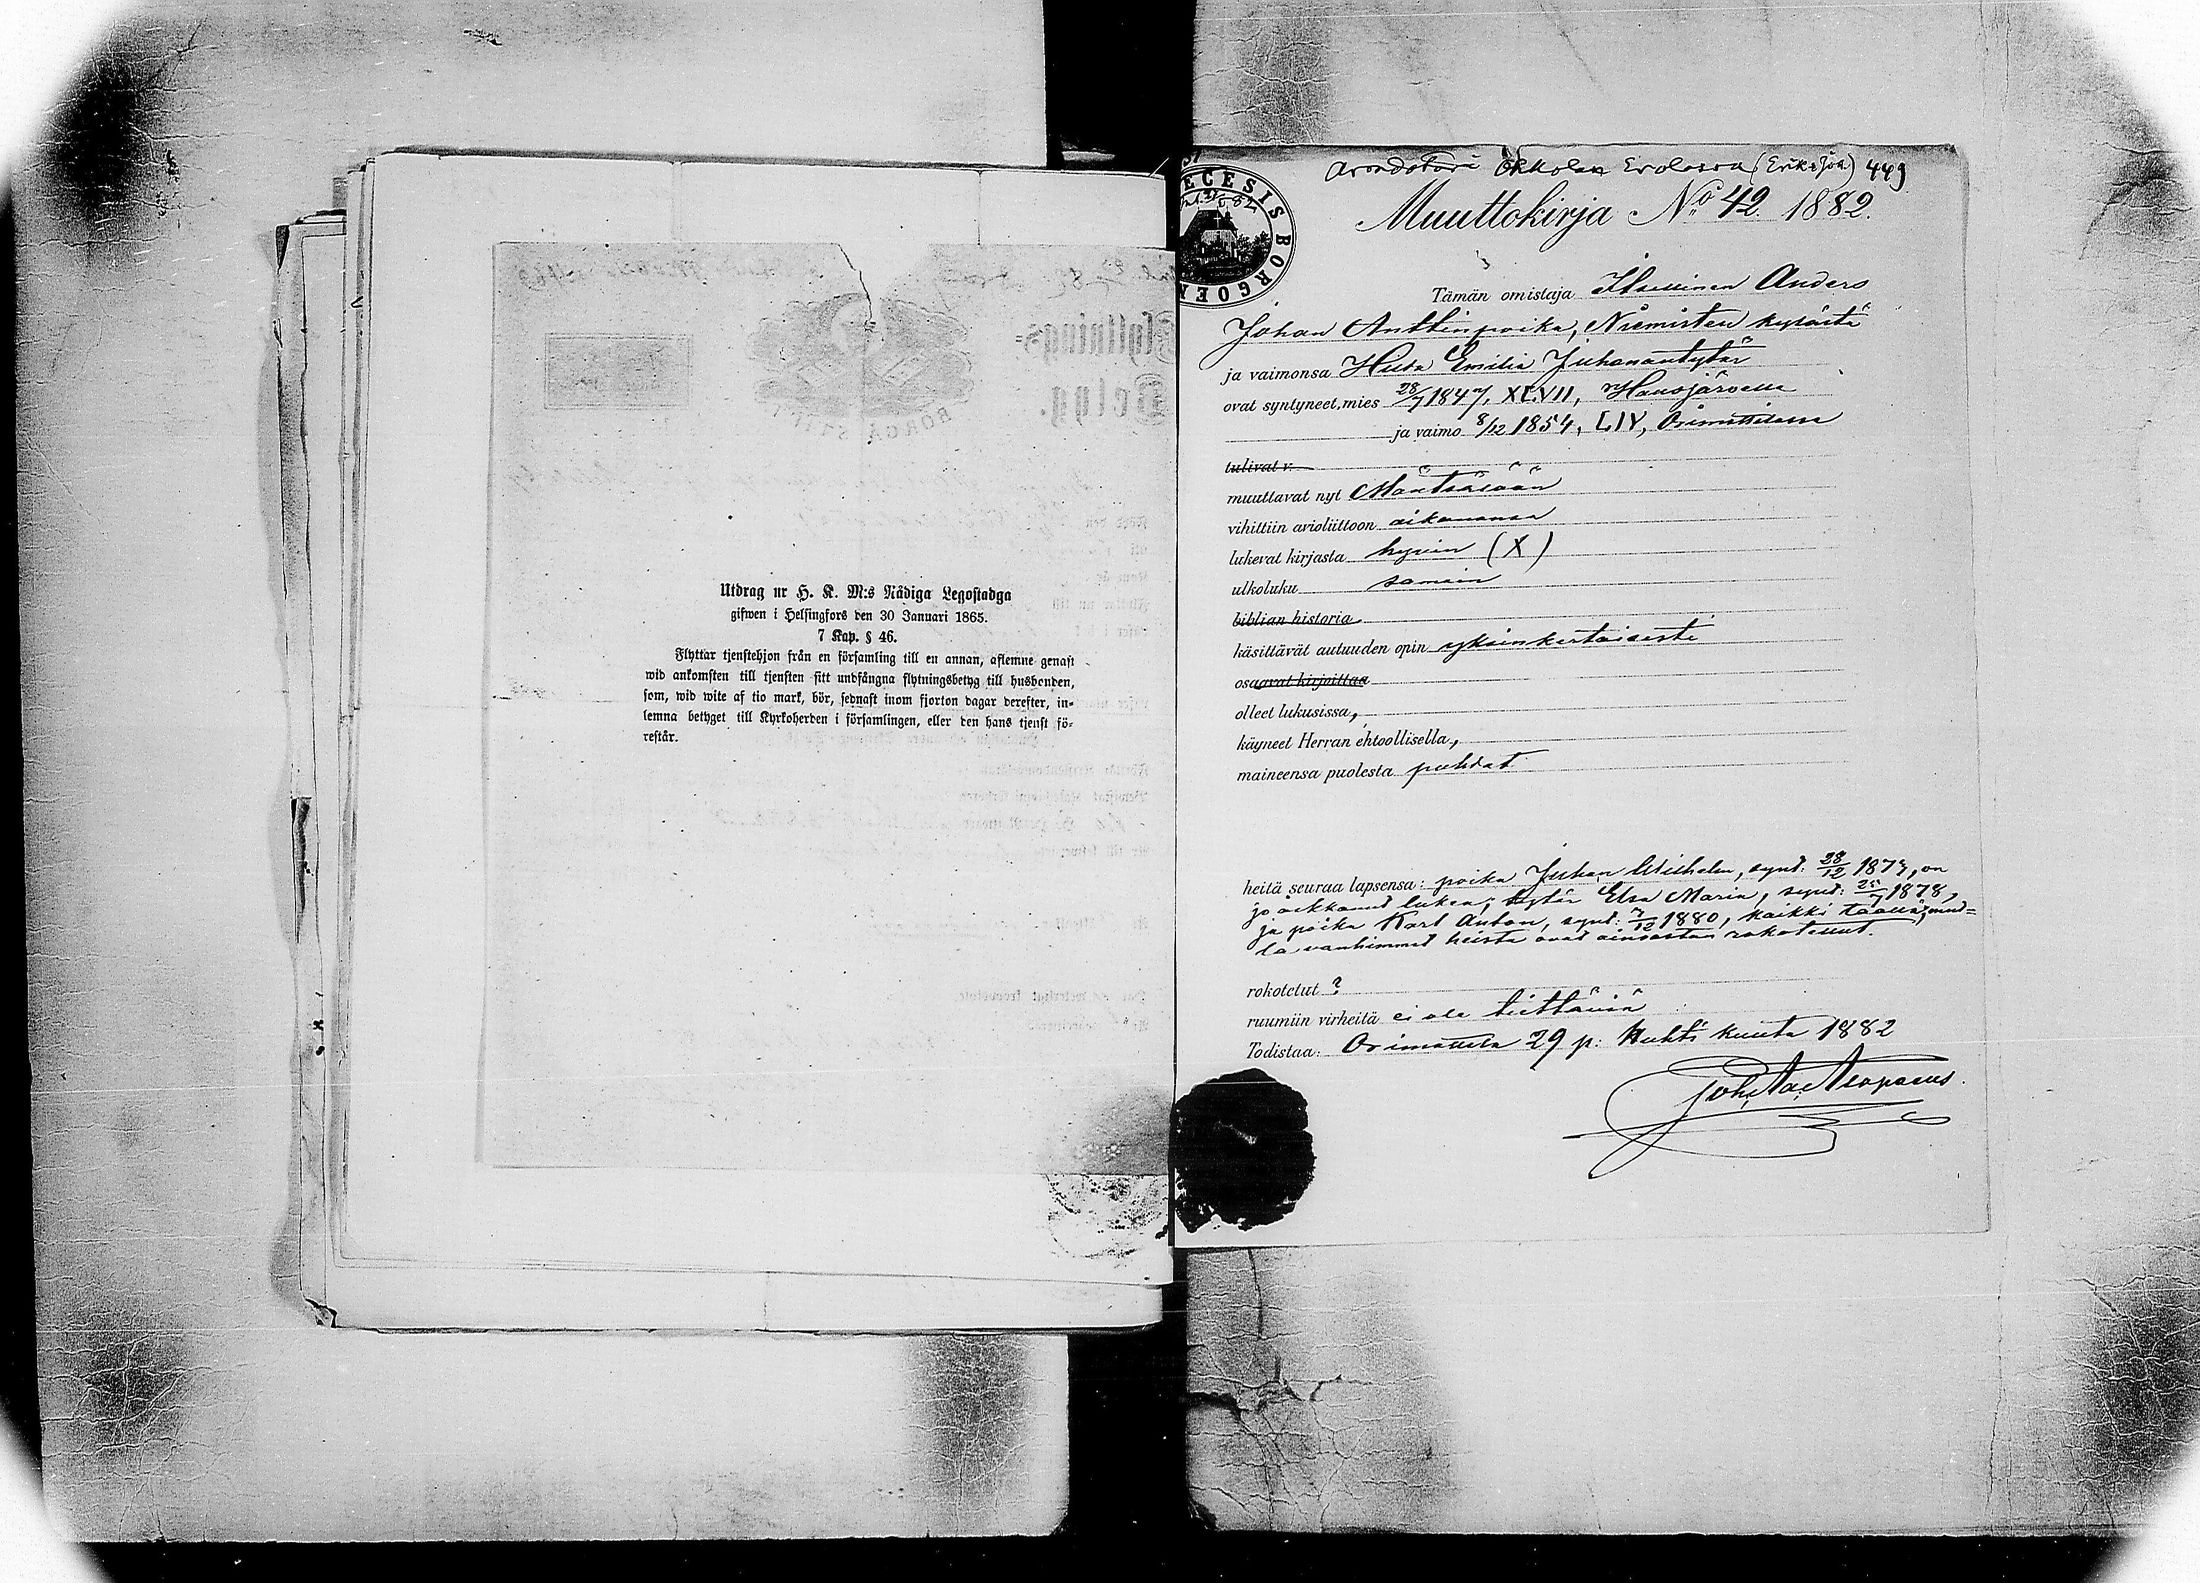 Utdrag ur H. K. M:s Nådiga Legostadga
gifwen i Helsingfors den 30 Januari 1865.
7 Kap. § 46.
Flyttar tjenstehjon från en församling till en annan, aflemne genast
wid ankomsten till tjensten sitt undfångna flytningsbetyg till husbonden,
som, wid wite af tio mark, bör, sednast inom fjorton dagar derefter, in-
lemna betyget till Kyrkoherden i församlingen, eller den hans tjenst fö-
restår.
ECESIS BORGOEN
Arendatori Ohkolan Erolassa (Erik Joh.) 449
Muuttokirja No 42. 1882.
Tämän omistaja Anders
Johan Antinpoika, Niemisten kylästä
ja vaimonsa Hilda Emilia Juhanantytär
ovat syntyneet, mies 28/7 1847, XLVII, Hausjärvellä
ja vaimo 8/12 1854, LIV, Orimattilassa
tulivat v.
muuttavat nyt Mäntsälään
vihittiin avioliittoon aikanansa
lukevat kirjasta hyvin (X)
ulkoluku samoin
biblian historia
käsittävät autuuden opin yksinkertaisesti
osaavat kirjoittaa
olleet lukusissa,
käyneet Herran ehtoollisella,
maineensa puolesta puhtat
heitä seuraa lapsensa: poika Juhan Wilhelm, synt: 28/12 1873, on
jo alkkanut lukea; tytär Elsa Maria, synt: 25/7 1878,
ja poika Karl Anton, synt: 7/12 1880, kaikki täällä, mut=
ta vanhimmat heistä ovat ainoastan rokotetut.
rokotetut ?
ruumiin virheitä ei ole tiettäviä
Todistaa: Orimattila 29 p: Huhti kuuta 1882